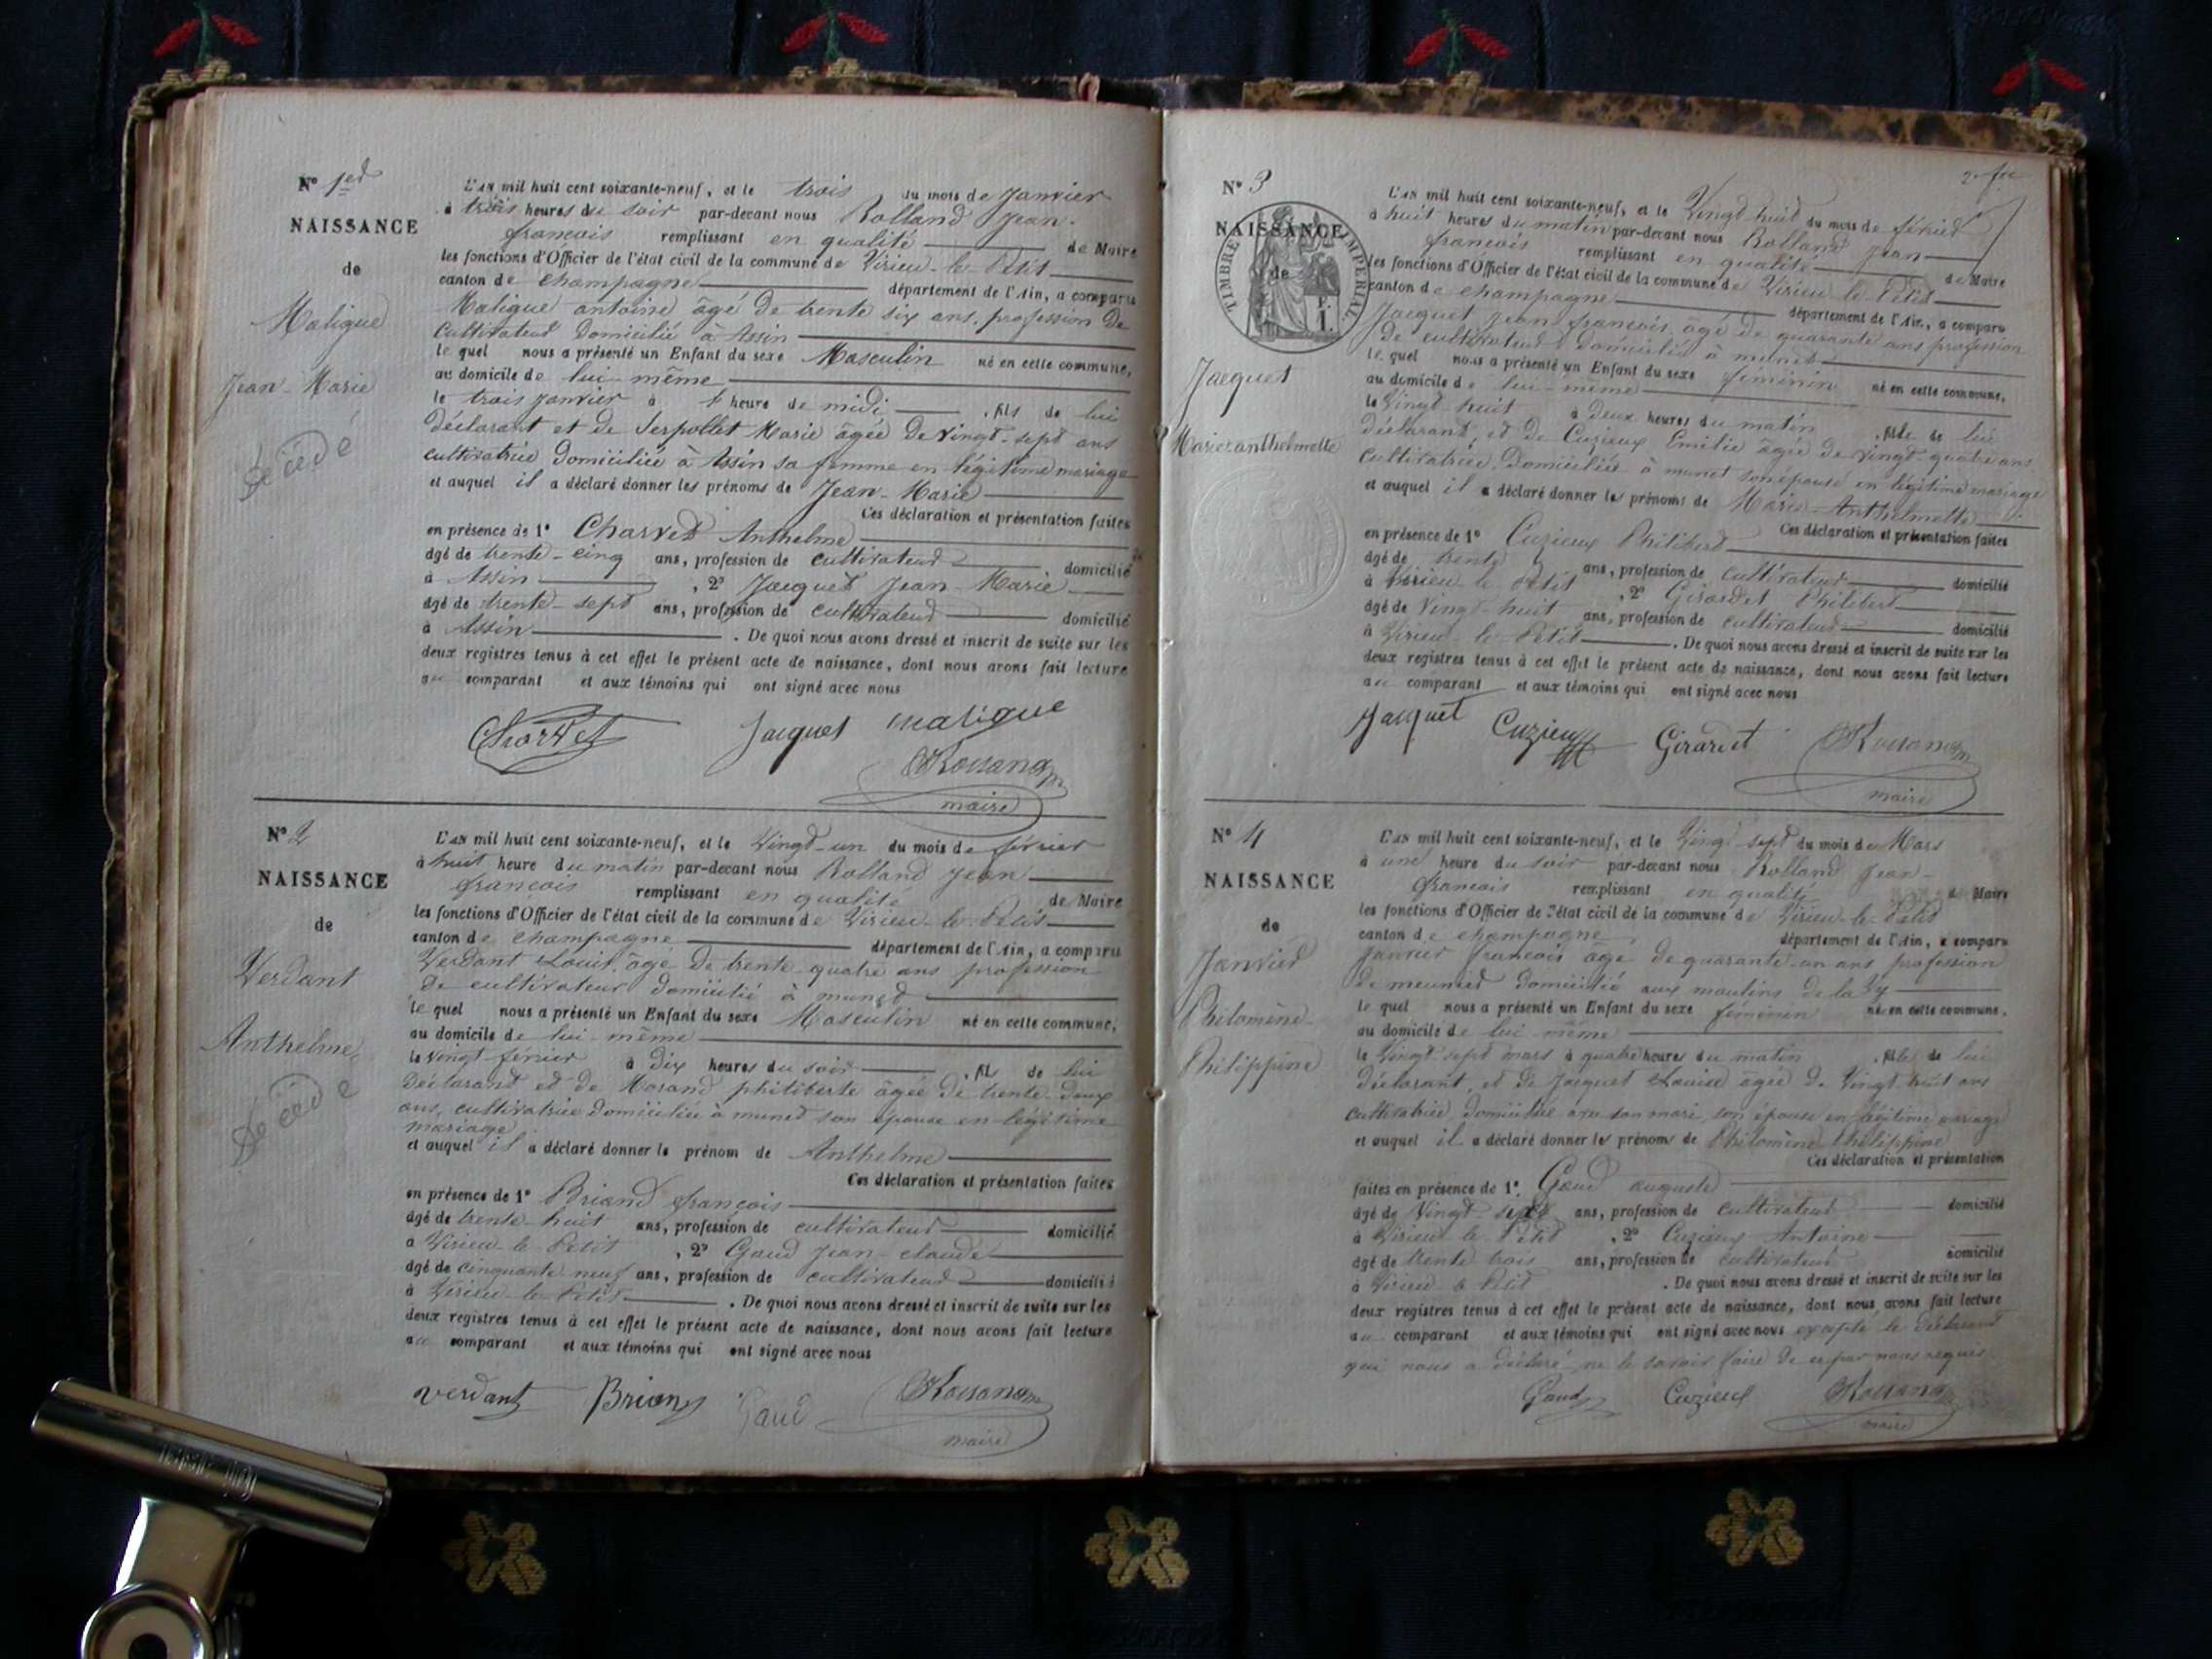 N° 1er
NAISSANCE
de
Maligue
Jean-Marie
décédé
L'an mil huit cent soixante-neuf, et le trois du mois de Janvier
à trois heures du soir par-devant nous Rolland Jean-
françois remplissant en qualité de Maire
les fonctions d'Officier de l'état civil de la commune de Virieu-le-Petit
canton de champagne département de l'Ain, a comparu
Maligue antoine âgé de trente six ans, profession de
cultivateur domicilié à Assin
le quel nous a présenté un Enfant du sexe Masculin né en cette commune,
au domicile de lui-même
le trois janvier à heure de midi , fils de lui
déclarant et de Serpollet Marie âgée de vingt-sept ans
cultivatrice domiciliée à Assin sa femme en légitime mariage
et auquel il a déclaré donner les prénoms de Jean-Marie
Ces déclaration et présentation faites
en présence de 1° Charvet Anthelme
âgé de trente-cinq ans, profession de cultivateur domicilié
à Assin , 2° Jacquet Jean-Marie
âgé de trente-sept ans, profession de cultivateur domicilié
à Assin . De quoi nous avons dressé et inscrit de suite sur les
deux registres tenus à cet effet le présent acte de naissance, dont nous avons fait lecture
au comparant et aux témoins qui ont signé avec nous
Charvet Jacquet maligue
maire
N° 2
NAISSANCE
de
Verdant
Anthelme
décédé
L'an mil huit cent soixante-neuf, et le Vingt-un du mois de février
à huit heure du matin par-devant nous Rolland Jean
françois remplissant en qualité de Maire
les fonctions d'Officier de l'état civil de la commune de Virieu-le-Petit
canton de champagne département de l'Ain, a comparu
Verdant Louis, âgé de trente-quatre ans profession
de cultivateur domicilié à munet
le quel nous a présenté un Enfant du sexe Masculin né en cette commune,
au domicile de lui-même
le vingt février à dix heures du soir , fils de lui
déclarant et de Morand philiberte âgée de trente-deux
ans, cultivatrice domiciliée à munet son épouse en légitime
mariage
et auquel il a déclaré donner le prénom de Anthelme
Ces déclaration et présentation faites
en présence de 1° Briand françois
âgé de trente-huit ans, profession de cultivateur domicilié
à Virieu-le-Petit , 2° Gaud Jean-claude
âgé de cinquante neuf ans, profession de cultivateur domicilié
à Virieu-le-Petit . De quoi nous avons dressé et inscrit de suite sur les
deux registres tenus à cet effet le présent acte de naissance, dont nous avons fait lecture
au comparant et aux témoins qui ont signé avec nous
verdant Briand Gaud
maire
N° 3
NAISSANCE
de
TIMBRE IMPERIAL
Jacquet
Marie-anthelmette
L'an mil huit cent soixante-neuf, et le Vingt huit du mois de février
à huit heures du matin par-devant nous Rolland Jean
françois remplissant en qualité de Maire
les fonctions d'Officier de l'état civil de la commune de Virieu-le-Petit
canton de champagne département de l'Ain, a comparu
Jacquet Jean françois, âgé de quarante ans profession
de cultivateur domicilié à munet
le quel nous a présenté un Enfant du sexe féminin né en cette commune,
au domicile de lui-même
le Vingt-huit à deux heures du matin , fille de lui
déclarant, et de Cuzieux Emilie âgée de vingt-quatre ans
cultivatrice domiciliée à munet son épouse en légitime mariage
et auquel il a déclaré donner les prénoms de Marie-Anthelmette
Ces déclaration et présentation faites
en présence de 1° Cuzieux Philibert
âgé de trente ans, profession de cultivateur domicilié
à Virieu le Petit , 2° Girardet Philibert
âgé de Vingt-huit ans, profession de cultivateur domicilié
à Virieu-le-Petit . De quoi nous avons dressé et inscrit de suite sur les
deux registres tenus à cet effet le présent acte de naissance, dont nous avons fait lecture
au comparant et aux témoins qui ont signé avec nous
Jacquet Cuzieux Girardet
maire
N° 4
NAISSANCE
de
Janvier
Philomène-
Philippine
L'an mil huit cent soixante-neuf, et le Vingt sept du mois de Mars
à une heure du soir par-devant nous Rolland Jean-
francois remplissant en qualité de Maire
les fonctions d'Officier de l'état civil de la commune de Virieu-le-Petit
canton de champagne département de l'Ain, a comparu
Janvier françois âgé de quarante-un ans profession
de meunier domicilié aux moulins de la
le quel nous a présenté un Enfant du sexe féminin né en cette commune,
au domicile de lui même
le Vingt-sept mars à quatre heures du matin , fille de lui
déclarant, et de Jacquet Louise âgée de Vingt-huit ans
cultivatrice, domiciliée avec son mari, son épouse en légitime mariage
et auquel il a déclaré donner les prénoms de Philomène-Philippine
Ces déclaration et présentation
faites en présence de 1°. Gaud auguste
âgé de Vingt sept ans, profession de cultivateur domicilié
à Virieu le Petit , 2° Cuzieux Antoine
âgé de trente trois ans, profession de cultivateur domicilié
à Virieu le Petit . De quoi nous avons dressé et inscrit de suite sur les
deux registres tenus à cet effet le présent acte de naissance, dont nous avons fait lecture
au comparant et aux témoins qui ont signé avec nous excepté le déclarant
qui nous a déclaré ne le savoir faire de ce par nous requis
Gaud Cuzieux
maire